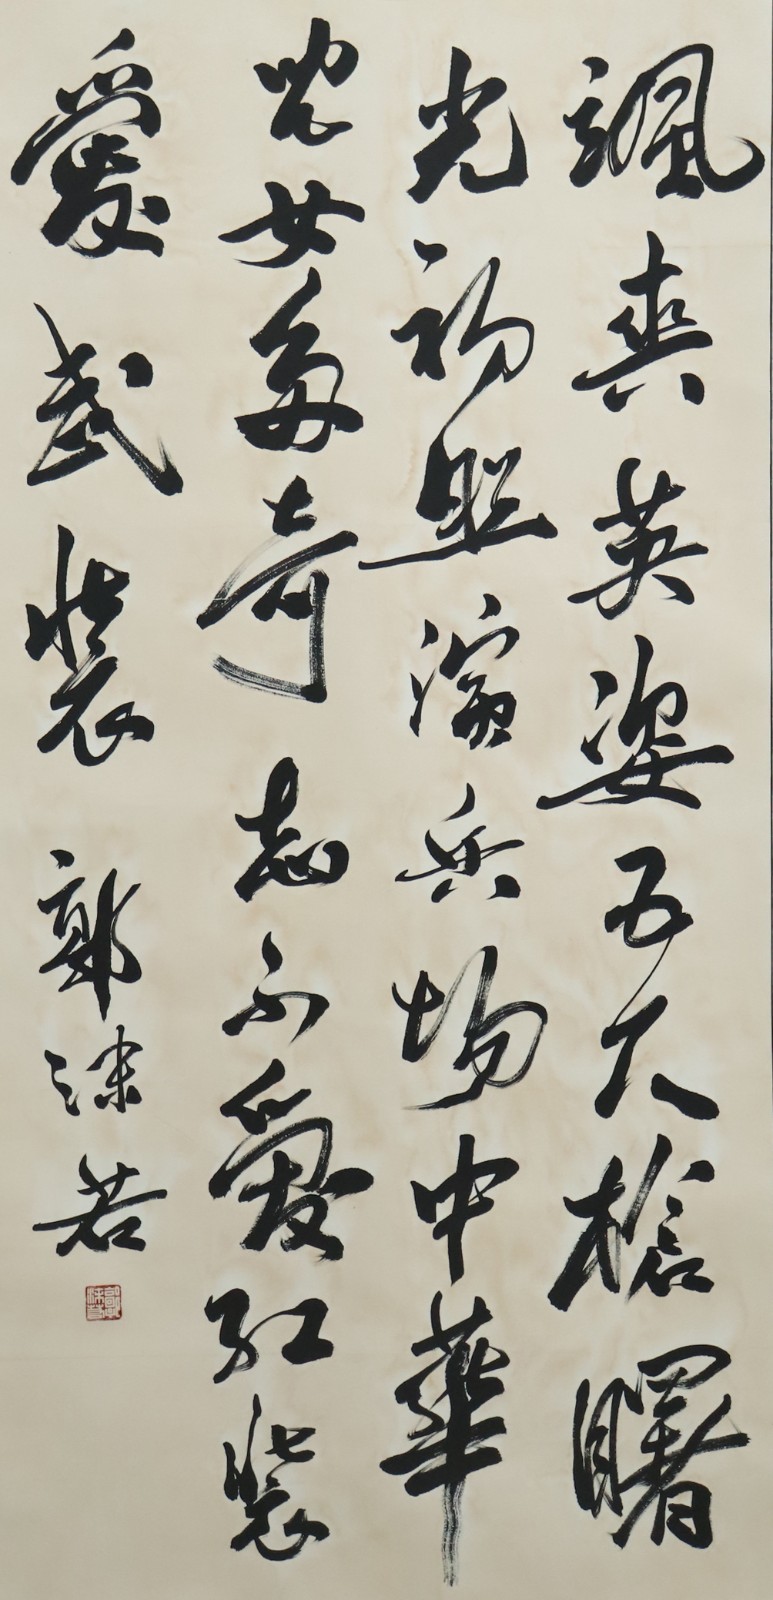 颯爽英姿五尺槍曙
光初照演兵場中華
兒女多奇志不愛紅裝
愛武裝 郭沫若
郭沫若